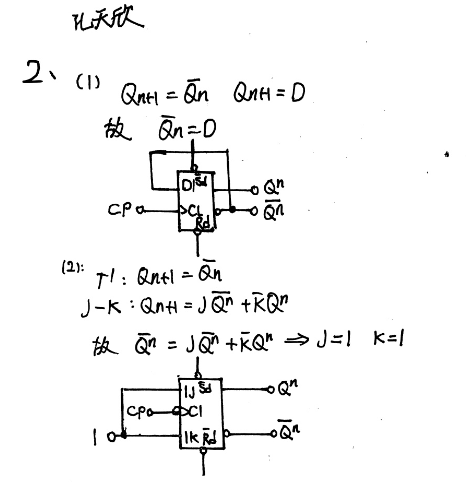 孔天欣
2、(1) Q̄n+1 = Q̄n Qn+1 = D
故 Q̄n = D
1D S̄d Qⁿ
CP C1 Q̄ⁿ
R̄d
(2): T': Qn+1 = Q̄n
J-K : Qn+1 = JQ̄ⁿ + K̄Qⁿ
故 Q̄ⁿ = JQ̄ⁿ + K̄Qⁿ ⇒ J=1 K=1
1J S̄d Qⁿ
CP C1
1 1K R̄d Q̄ⁿ